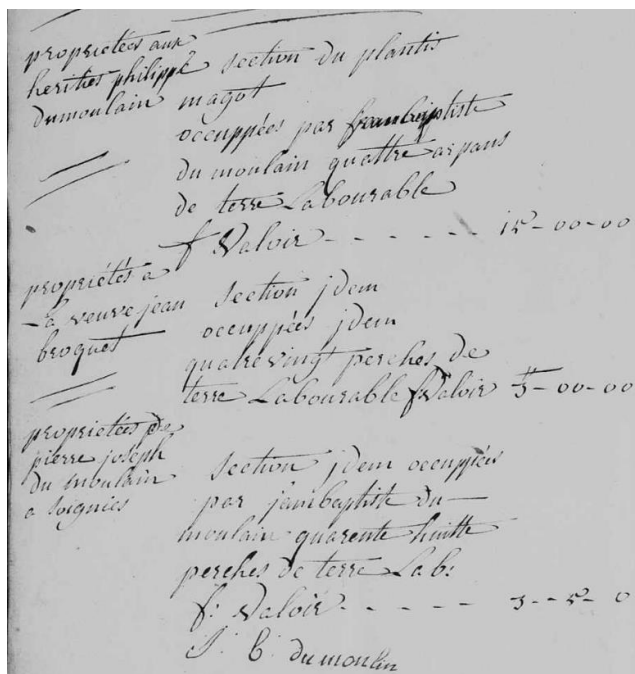 proprietées aux
herities philippe
dumoulain
section du plantis
magot
occuppées par
du moulain quattre arpans
de terre Labourable
f Valoir - - - - - - 15-00-00
propriétés a
La veuve jean
broquet
section jdem
occuppées jdem
quatrevingt perches de
terre Labourable fValoir 3-00-00
proprietées de
pierre joseph
du moulain
a soignies
section jdem occuppiées
par jambaptiste du—
moulain quarente huitte
perches de terre Lab:
f: Valoir - - - - - 3--5-0
J: b: dumoulin